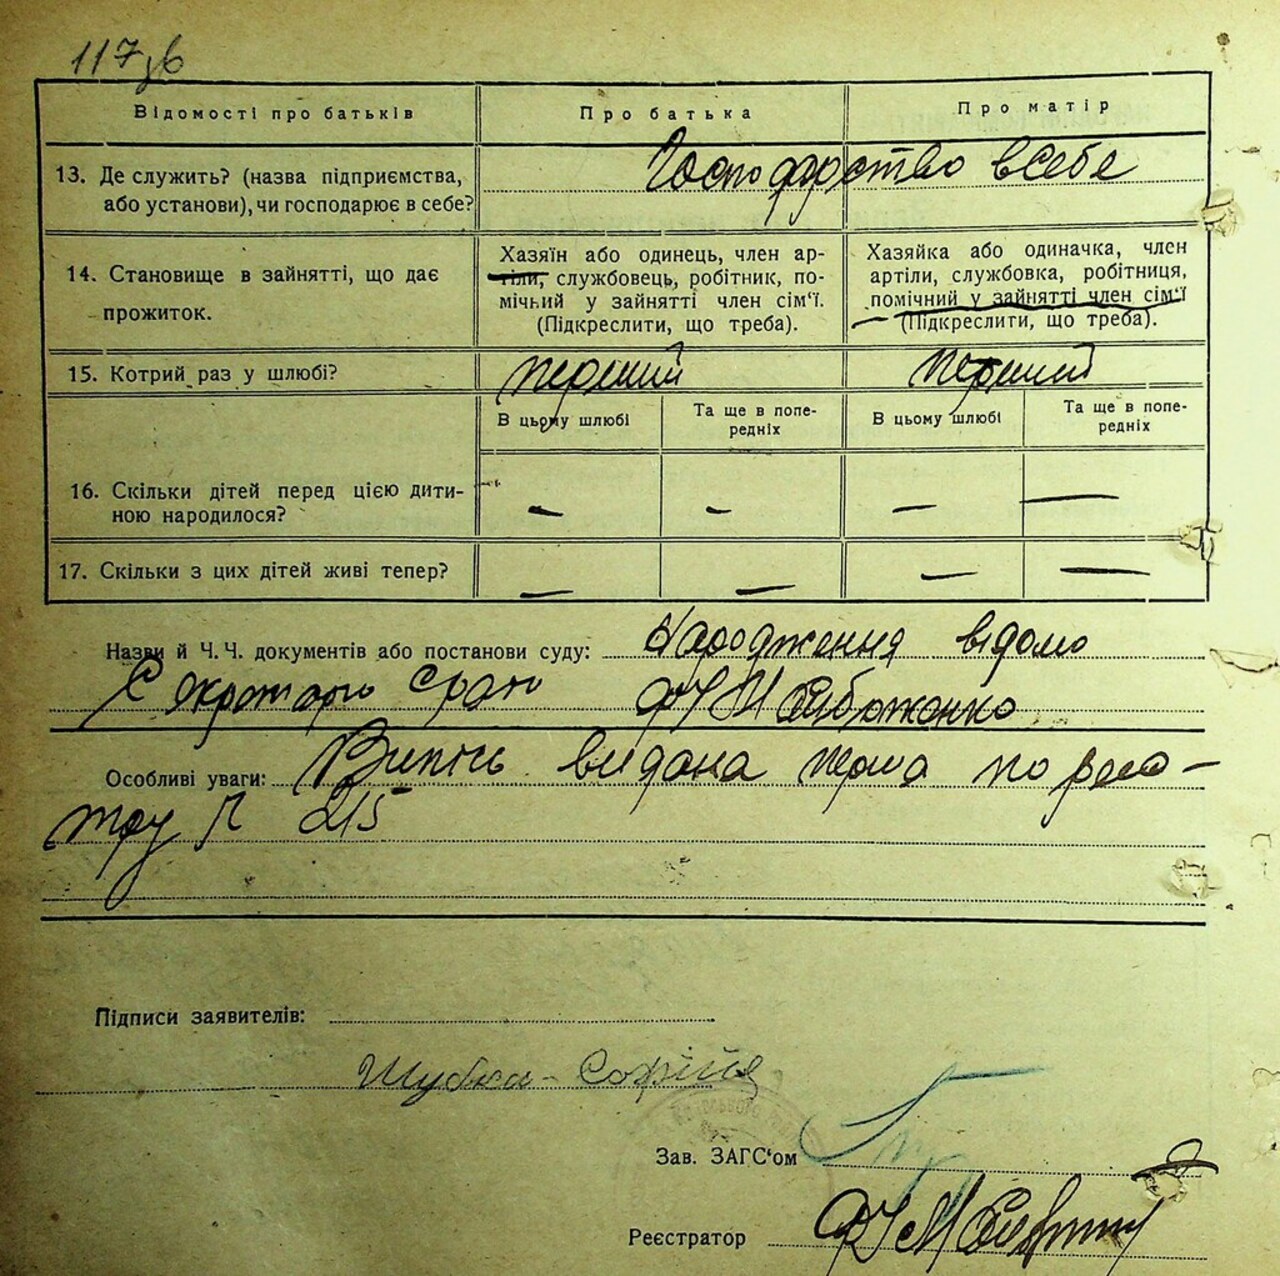 117зв
Відомості про батьків
Про батька
Про матір
13. Де служить? (назва підприємства,
або установи), чи господарює в себе?
Господарство в себе
14. Становище в зайнятті, що дає
прожиток.
Хазяїн або одинець, член ар-
тіли, службовець, робітник, по-
мічний у зайнятті член сім'ї.
(Підкреслити, що треба).
Хазяйка або одиначка, член
артіли, службовка, робітниця,
помічний у зайнятті член сім'ї
(Підкреслити, що треба).
15. Котрий раз у шлюбі?
перший
перший
В цьому шлюбі
Та ще в попе-
редніх
В цьому шлюбі
Та ще в попе-
редніх
16. Скільки дітей перед цією дити-
ною народилося?
— — — —
17. Скільки з цих дітей живі тепер?
— — — —
Назви й Ч. Ч. документів або постанови суду: Народження відомо
Особливі уваги: Випись видана перша по реєс-
тру № 215
Підписи заявителів:
Шубка Софія
Зав. ЗАГС'ом
Реєстратор